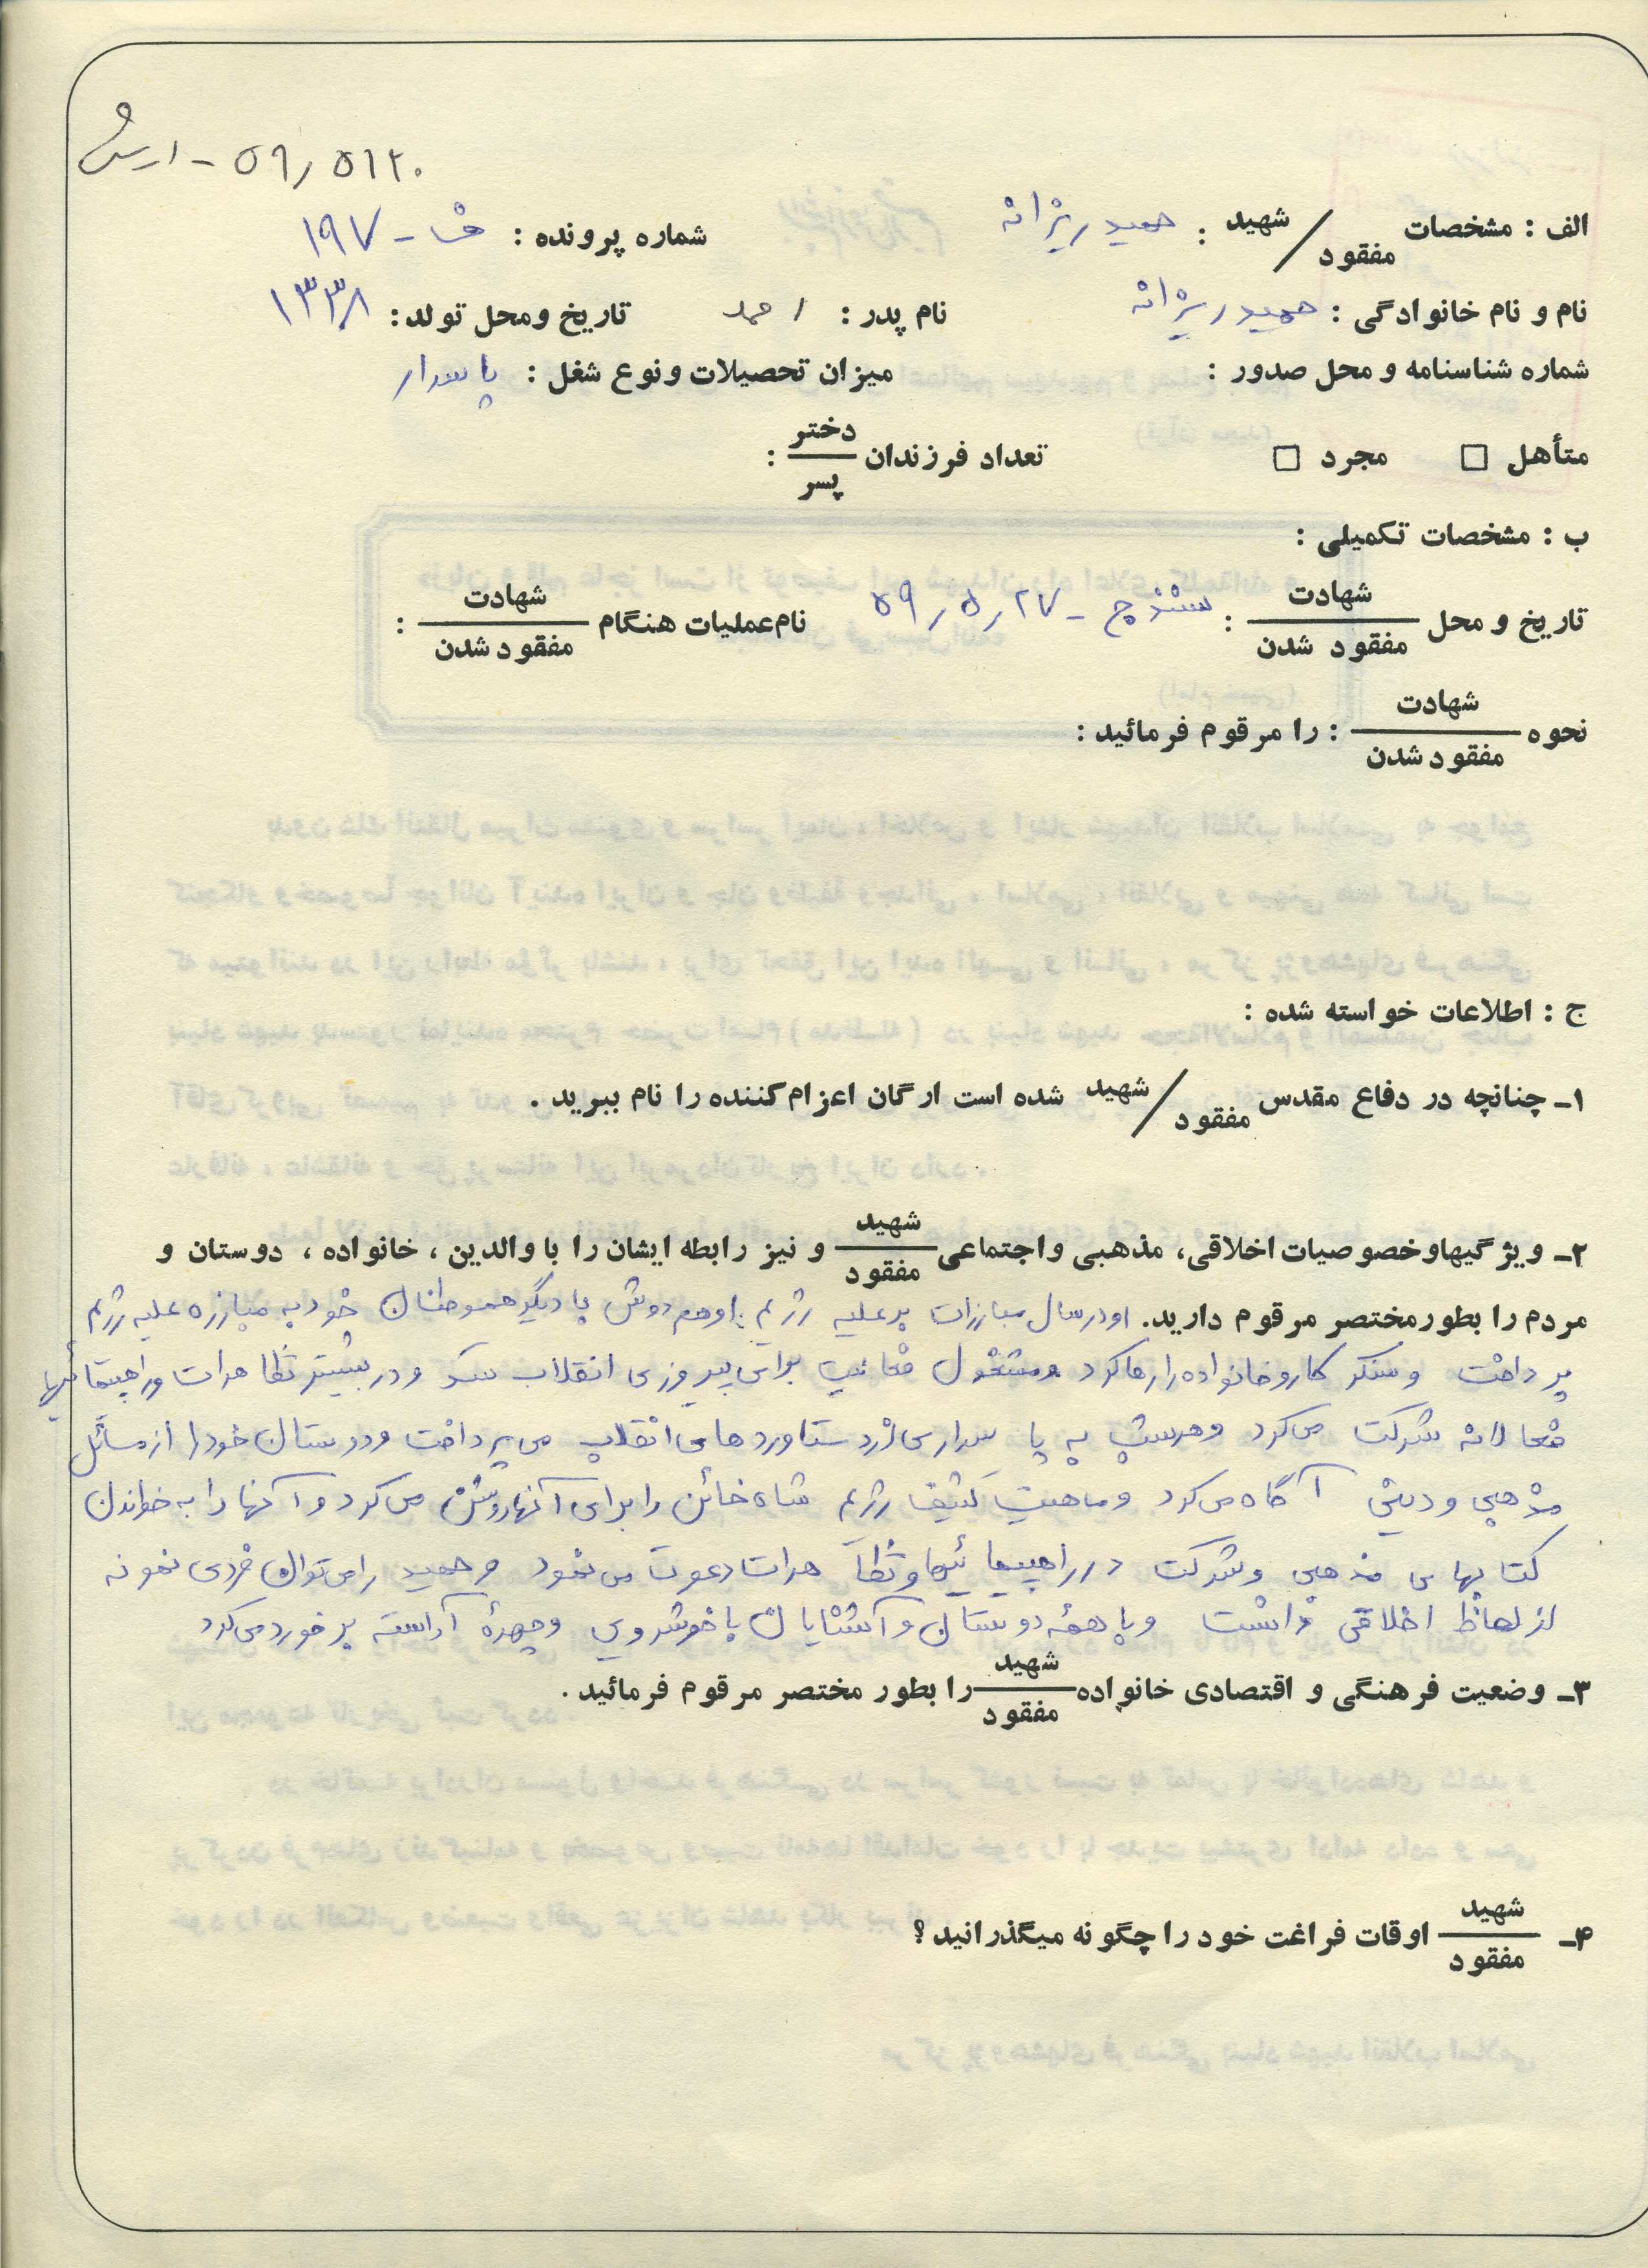 ۵۹٫۵۱۲۰ - ارس
الف : مشخصات شهید / مفقود : حمید ریزانه شماره پرونده : ف - ۱۹۷
نام و نام خانوادگی : حمید ریزانه نام پدر : احمد تاریخ ومحل تولد : ۱۳۳۸
شماره شناسنامه و محل صدور : میزان تحصیلات ونوع شغل : پاسدار
متأهل □ مجرد □ تعداد فرزندان دختر / پسر :
ب : مشخصات تکمیلی :
تاریخ و محل شهادت / مفقود شدن : سنندج - ۵۹٫۵٫۲۷ نام عملیات هنگام شهادت / مفقود شدن :
نحوه شهادت / مفقود شدن : را مرقوم فرمائید :
ج : اطلاعات خواسته شده :
۱ـ چنانچه در دفاع مقدس شهید / مفقود شده است ارگان اعزام کننده را نام ببرید .
۲ـ ویژگیهاوخصوصیات اخلاقی، مذهبی واجتماعی شهید / مفقود و نیز رابطه ایشان را با والدین ، خانواده ، دوستان و
مردم را بطورمختصر مرقوم دارید. او در سال مبارزات بر علیه رژیم او هم دوش با دیگر هموطنان خود به مبارزه علیه رژیم
پرداخت و سنگر کار و خانواده را رها کرد و مشغول فعالیت برای پیروزی انقلاب شد و در بیشتر تظاهرات و راهپیمائیها
فعالانه شرکت می‌کرد و هر شب به پاسداری از دستاوردهای انقلاب می‌پرداخت و دوستان خود را از مسائل
مذهبی و دینی آگاه می‌کرد و ماهیت کثیف رژیم شاه خائن را برای آنها روشن می‌کرد و آنها را به خواندن
کتابهای مذهبی و شرکت در راهپیمائیها و تظاهرات دعوت می‌نمود و حمید را می‌توان فردی نمونه
از لحاظ اخلاقی دانست و با همهٔ دوستان و آشنایان با خوشروی و چهرهٔ آراسته برخورد می‌کرد
۳ـ وضعیت فرهنگی و اقتصادی خانواده شهید / مفقود را بطور مختصر مرقوم فرمائید .
۴ـ شهید / مفقود اوقات فراغت خود را چگونه میگذرانید ؟